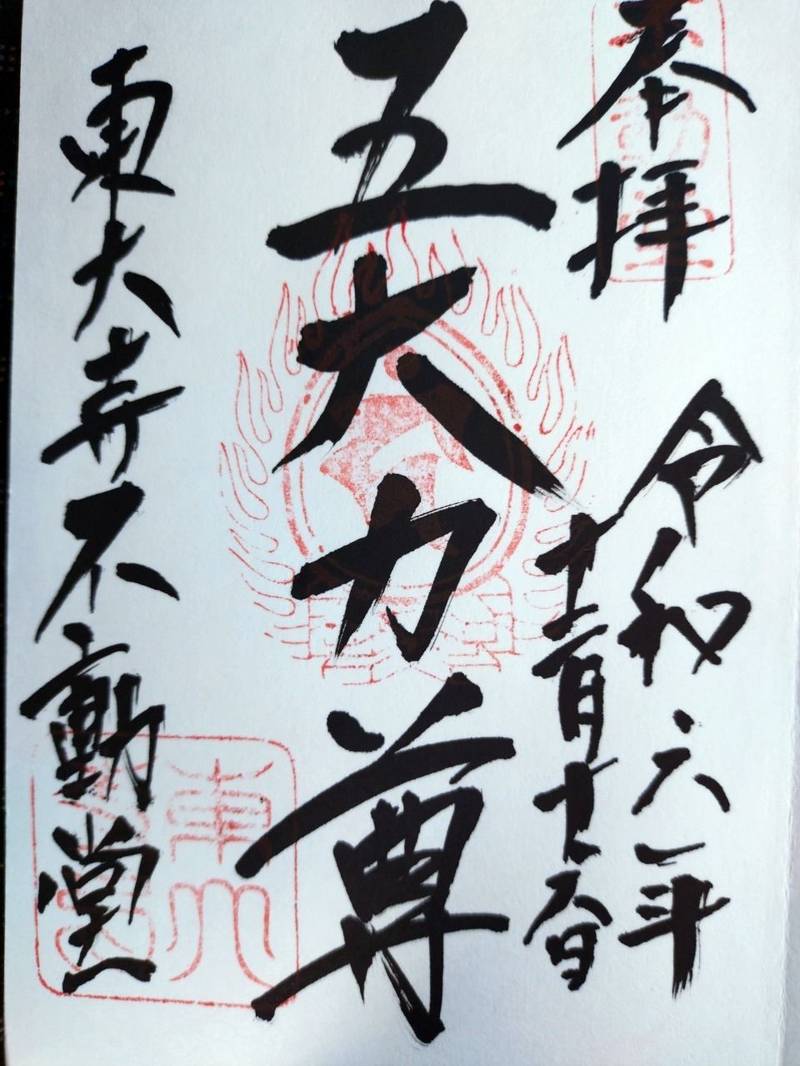 奉拝
令和六年
十二月
五大力尊
東大寺不動堂